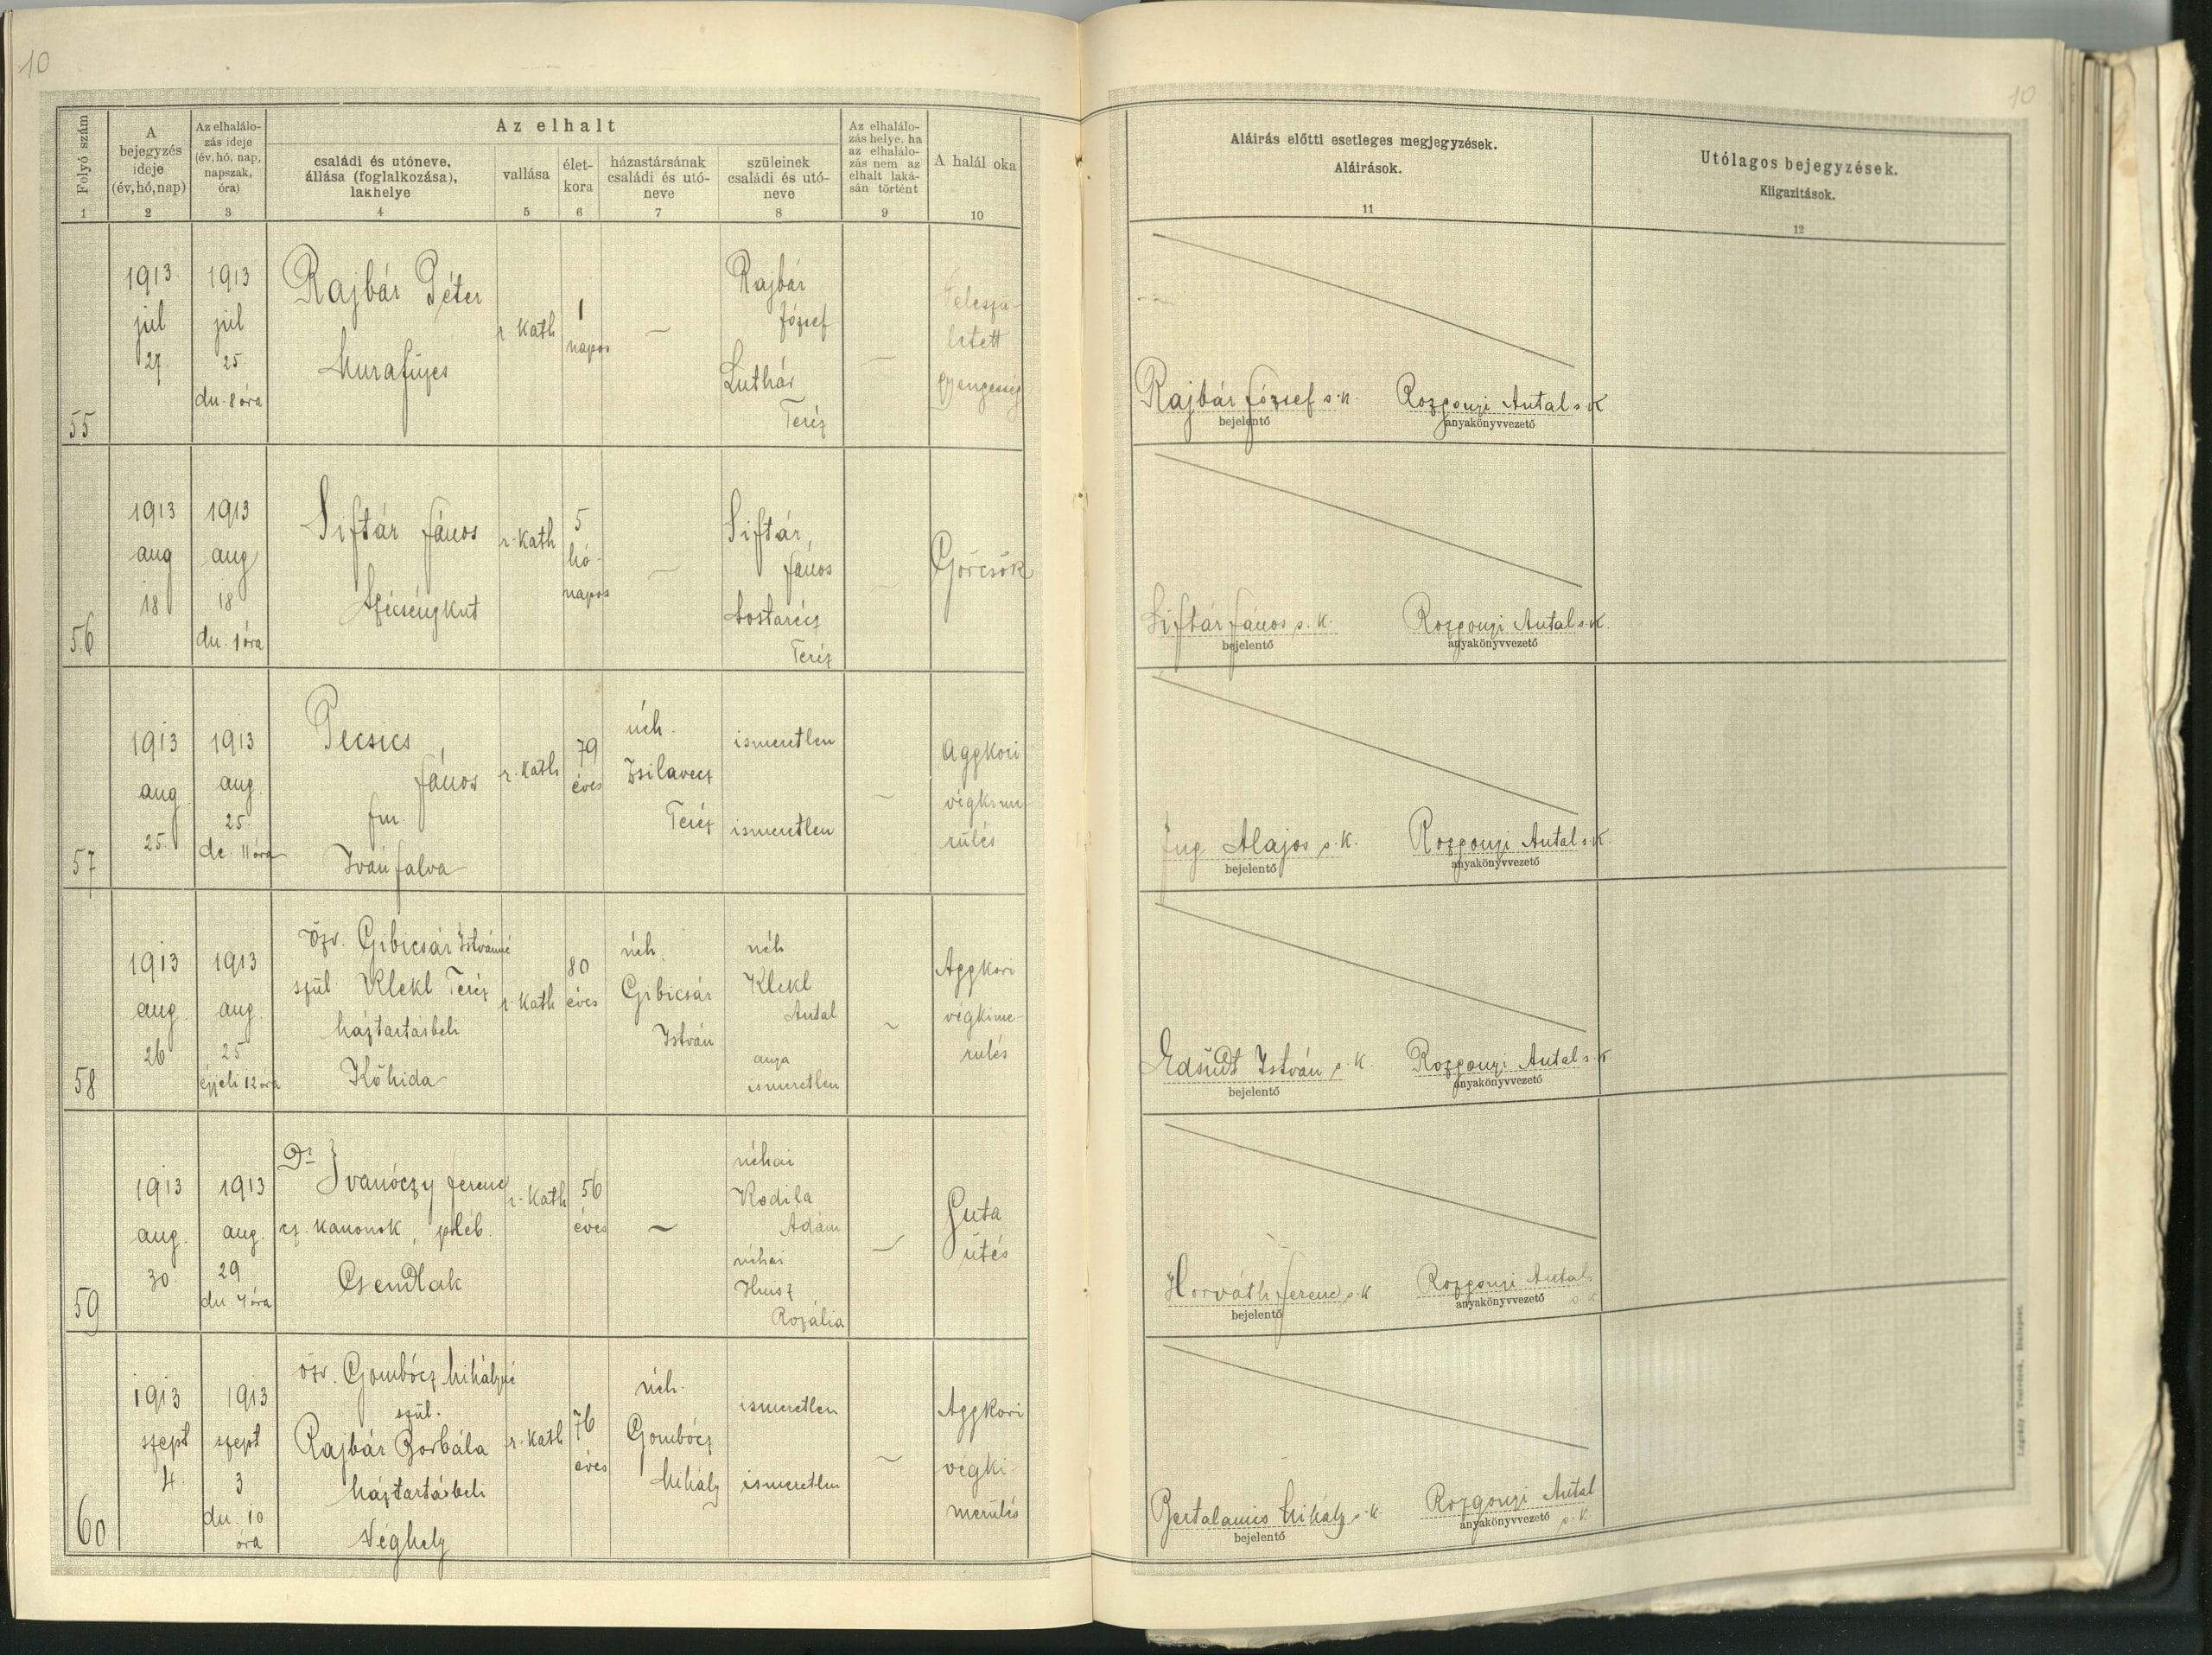 10
10
Folyó szám
A
bejegyzés
ideje
(év, hó, nap)
Az elhalálo-
zás ideje
(év, hó, nap,
napszak,
óra)
Az elhalt
családi és utóneve,
állása (foglalkozása),
lakhelye
vallása
élet-
kora
házastársának
családi és utó-
neve
szüleinek
családi és utó-
neve
Az elhalálo-
zás helye, ha
az elhalálo-
zás nem az
elhalt laká-
sán történt
A halál oka
Aláírás előtti esetleges megjegyzések.
Aláírások.
Utólagos bejegyzések.
Kiigazitások.
1 2 3 4 5 6 7 8 9 10 11 12
55
1913
júl
27.
1913
júl
25.
du. 8 óra
Rajbár Péter
Murafüzes
r. kath
1
napos
—
Rajbár
József
Luthár
Teréz
—
Veleszü-
letett
gyengeség
Rajbár József s. k.
bejelentő
Rozgonyi Antal s. k.
anyakönyvvezető
56
1913
aug
18
1913
aug
18
du. 1 óra
Siftár János
Szécsénykut
r. kath
5
hó-
napos
—
Siftár
János
Sostarécz
Teréz
—
Görcsök
Siftár János s. k.
bejelentő
Rozgonyi Antal s. k.
anyakönyvvezető
57
1913
aug
25.
1913
aug.
25
de. 11 óra
Pecsics
János
fm
Ivánfalva
r. kath
79
éves
néh.
Zsilavecz
Teréz
ismeretlen
ismeretlen
—
Aggkori
végkime-
rülés
Fug Alajos s. k.
bejelentő
Rozgonyi Antal s. k.
anyakönyvvezető
58
1913
aug.
26
1913
aug.
25
éjjeli 12 óra
özv. Gibicsár Istvánné
szül. Klekl Teréz
háztartásbeli
Kőhida
r. kath
80
éves
néh.
Gibicsár
István
néh
Klekl
Antal
anya
ismeretlen
—
Aggkori
végkime-
rülés
István s. k.
bejelentő
Rozgonyi Antal s. k.
anyakönyvvezető
59
1913
aug.
30.
1913
aug.
29
du 4 óra
Dr Ivanóczy Ferenc
cz. kanonok, pléb.
Csendlak
r. kath
56
éves
—
néhai
Kodila
Ádám
néhai
Husz
Rozália
—
Guta
ütés
Horváth Ferenc s. k
bejelentő
Rozgonyi Antal
s. k.
anyakönyvvezető
60
1913
szept
4.
1913
szept
3
du. 10
óra
özv. Gombócz Mihályné
szül.
Rajbár Borbála
háztartásbeli
Véghely
r. kath
76
éves
néh.
Gombócz
Mihály
ismeretlen
ismeretlen
—
Aggkori
végki-
merülés
Bertalanics Mihály s. k.
bejelentő
Rozgonyi Antal
s. k.
anyakönyvvezető